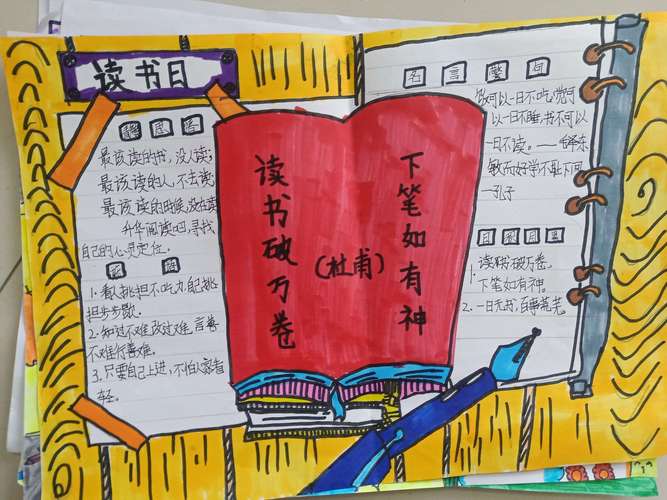 读书日
最该读的书，没人读；
最该读的人，不去读；
最该读的时候，没在读
升华阅读吧，寻找
自己的心灵定位。
1. 看人挑担不吃力，自己挑
担步步歇。
2. 知过不难改过难，言善
不难行善难。
3. 只要自己上进，不怕人家看
轻。
读书破万卷
（杜甫）
下笔如有神
名言
饭可以一日不吃，觉可
以一日不睡，书不可以
一日不读。——毛泽东
敏而好学不耻下问
—孔子
1. 读书破万卷，
下笔如有神。
2. 一日无书，百事荒芜